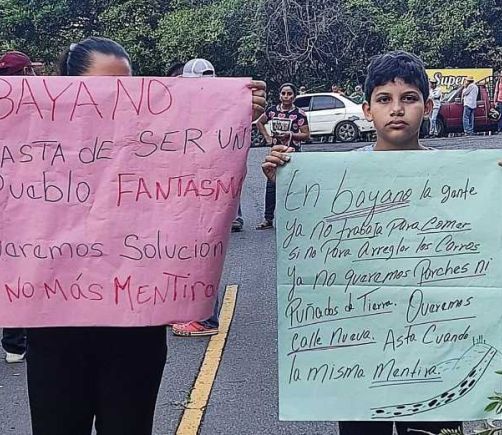 BAYANO
BASTA DE SER UN
Pueblo FANTASMA
Queremos Solución
NO MÁS MENTIRA
En bayano la gente
ya no trabaja Para Comer
si no Para Arreglar los Carros
Ya no queremos Parches ni
Puñados de Tierra. Queremos
calle Nueva. Asta Cuando
la misma Mentira.
Super